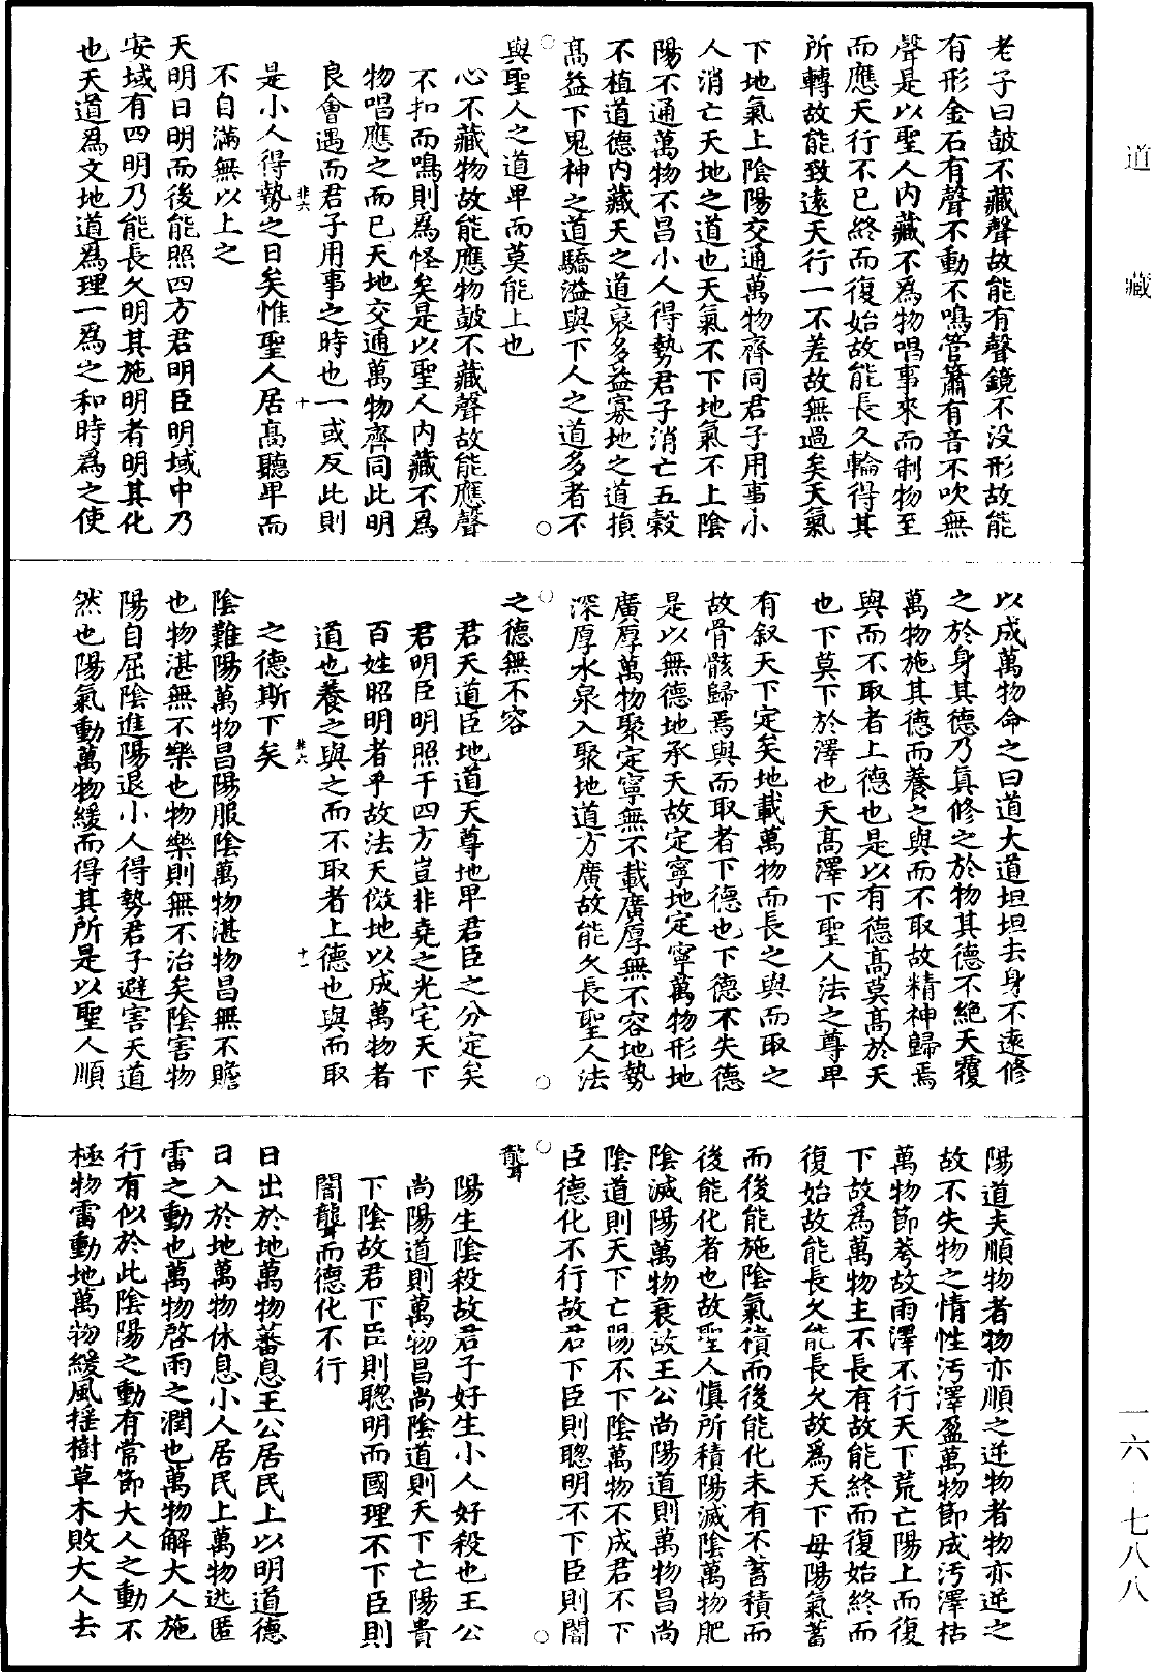 道藏
老子曰皷不藏聲故能有聲鏡不没形故能
有形金石有聲不動不鳴管簫有音不吹無
聲是以聖人内藏不爲物唱事來而制物至
而應天行不已終而復始故能長久輪得其
所轉故能致遠天行一不差故無過矣天氣
下地氣上陰陽交通萬物齊同君子用事小
人消亡天地之道也天氣不下地氣不上陰
陽不通萬物不昌小人得勢君子消亡五穀
不植道德内藏天之道裒多益寡地之道損
髙益下鬼神之道驕溢與下人之道多者不
與聖人之道卑而莫能上也
心不藏物故能應物皷不藏聲故能應聲
不扣而鳴則爲怪矣是以聖人内藏不爲
物唱應之而已天地交通萬物齊同此明
良會遇而君子用事之時也一或反此則
非六 十
是小人得勢之日矣惟聖人居髙聽卑而
不自滿無以上之
天明日明而後能照四方君明臣明域中乃
安域有四明乃能長久明其施明者明其化
也天道爲文地道爲理一爲之和時爲之使
以成萬物命之曰道大道坦坦去身不遠修
之於身其德乃真修之於物其德不絶天覆
萬物施其德而養之與而不取故精神歸焉
與而不取者上德也是以有德髙莫髙於天
也下莫下於澤也天髙澤下聖人法之尊卑
有叙天下定矣地載萬物而長之與而取之
故骨骸歸焉與而取者下德也下德不失德
是以無德地承天故定寧地定寧萬物形地
廣厚萬物聚定寧無不載廣厚無不容地勢
深厚水泉入聚地道方廣故能久長聖人法
之德無不容
君天道臣地道天尊地卑君臣之分定矣
君明臣明照于四方豈非堯之光宅天下
百姓昭明者乎故法天倣地以成萬物者
道也養之與之而不取者上德也與而取
十一
之德斯下矣
陰難陽萬物昌陽服陰萬物湛物昌無不贍
也物湛無不樂也物樂則無不治矣陰害物
陽自屈陰進陽退小人得勢君子避害天道
然也陽氣動萬物緩而得其所是以聖人順
陽道夫順物者物亦順之逆物者物亦逆之
故不失物之情性汚澤盈萬物節成汚澤枯
萬物節荂故雨澤不行天下荒亡陽上而復
下故爲萬物主不長有故能終而復始終而
復始故能長久能長久故爲天下母陽氣蓄
而後能施陰氣積而後能化未有不蓄積而
後能化者也故聖人慎所積陽滅陰萬物肥
陰滅陽萬物衰故王公尚陽道則萬物昌尚
陰道則天下亡陽不下陰萬物不成君不下
臣德化不行故君下臣則聰明不下臣則闇
聾
陽生陰殺故君子好生小人好殺也王公
尚陽道則萬物昌尚陰道則天下亡陽貴
下陰故君下臣則聰明而國理不下臣則
闇聾而德化不行
日出於地萬物蕃息王公居民上以明道德
日入於地萬物休息小人居民上萬物逃匿
雷之動也萬物啓雨之潤也萬物解大人施
行有似於此陰陽之動有常節大人之動不
極物雷動地萬物緩風揺樹草木敗大人去
一六—七八八